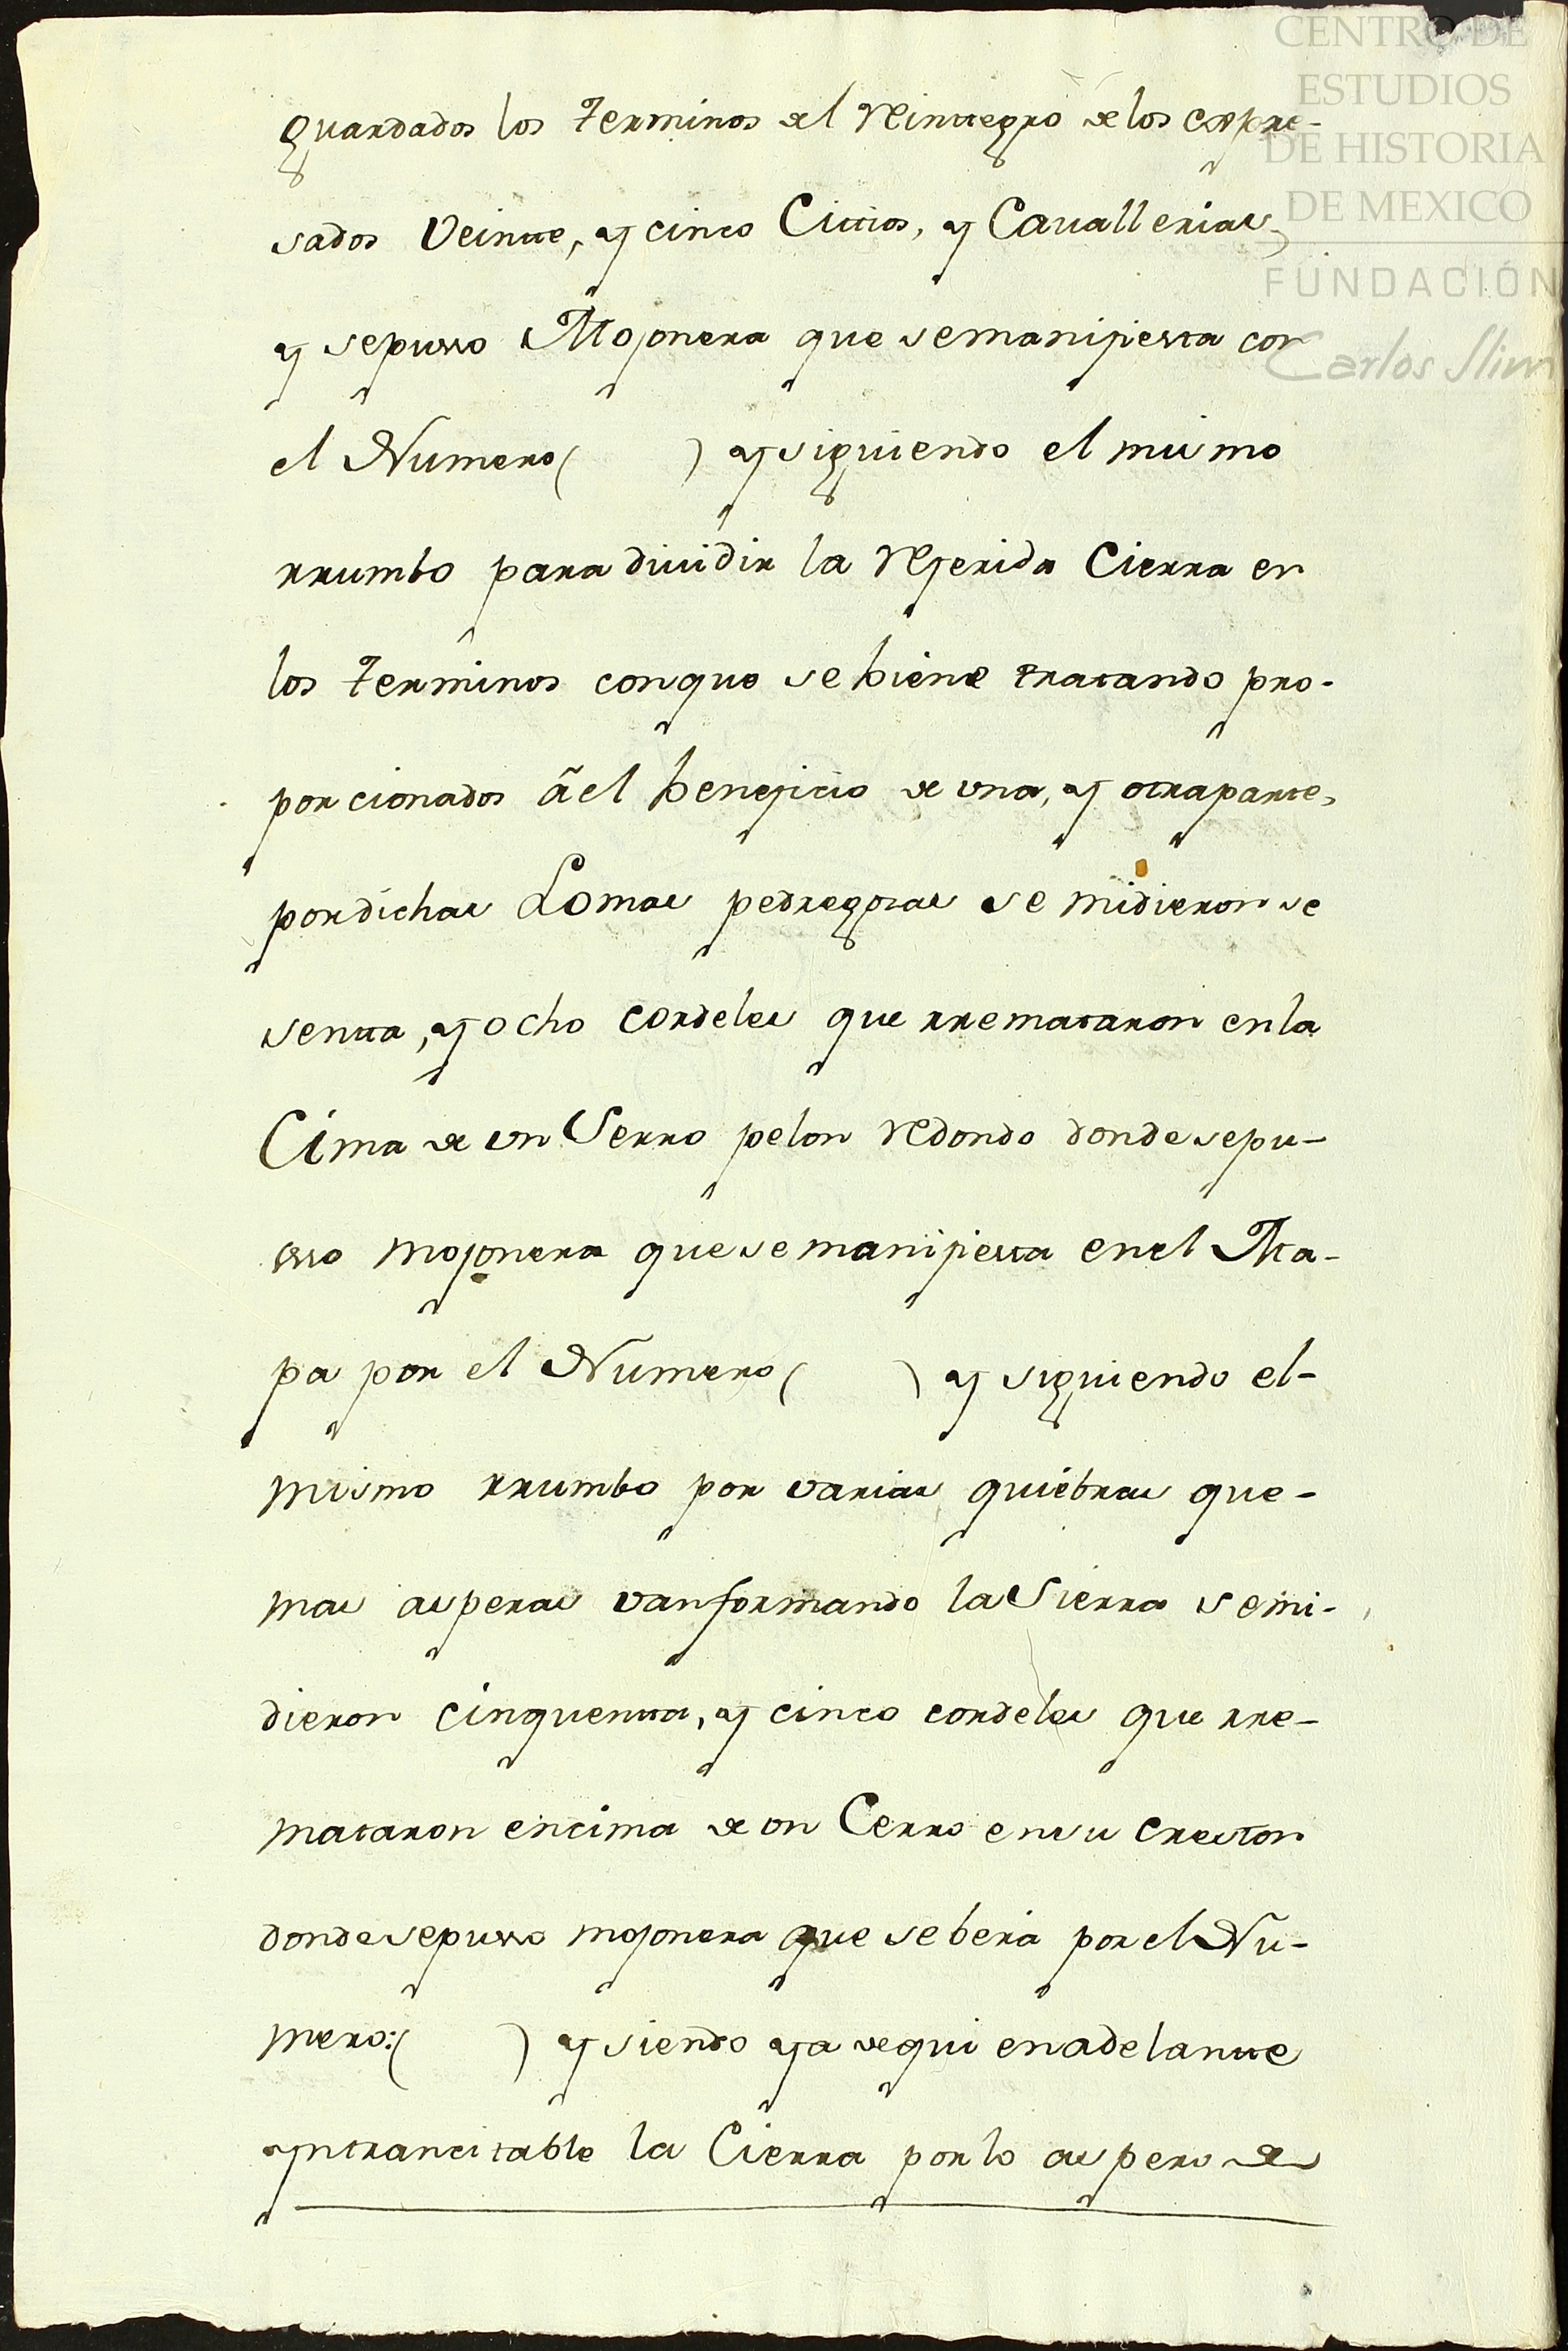 CENTRO DE
ESTUDIOS
DE HISTORIA
DE MEXICO
FUNDACIÓN
Carlos Slim
guardados los terminos del Reinttegro de los expre-
sados Veintte, y cinco Cittios, y Cavallerias,
y sepusso Mojonera que semanifiesta con
el Numero( ) y siguiendo el mismo
rrumbo para dividir la Referida Cierra en
los terminos conque se biene tratando pro-
porcionados ãel beneficio de una, y otraparte,
pordichas Lomas pedregosas se midieron se
sentta, y ocho cordeles que rremataron enla
Cima de un Serro pelon Redondo donde sepu-
sso mojonera que semanifiesta enel Ma-
pa por el Numero( ) y siguiendo el-
mismo rrumbo por varias quiebras que-
mas asperas vanformando la Sierra semi-
dieron cinquentta, y cinco cordeles que rre-
mataron encima de un Cerro ensu Creston
donde sepusso mojonera que se bera por el Nu-
mero:( ) y siendo ya dequi enadelantte
yntrancitable la Cierra porlo aspero de